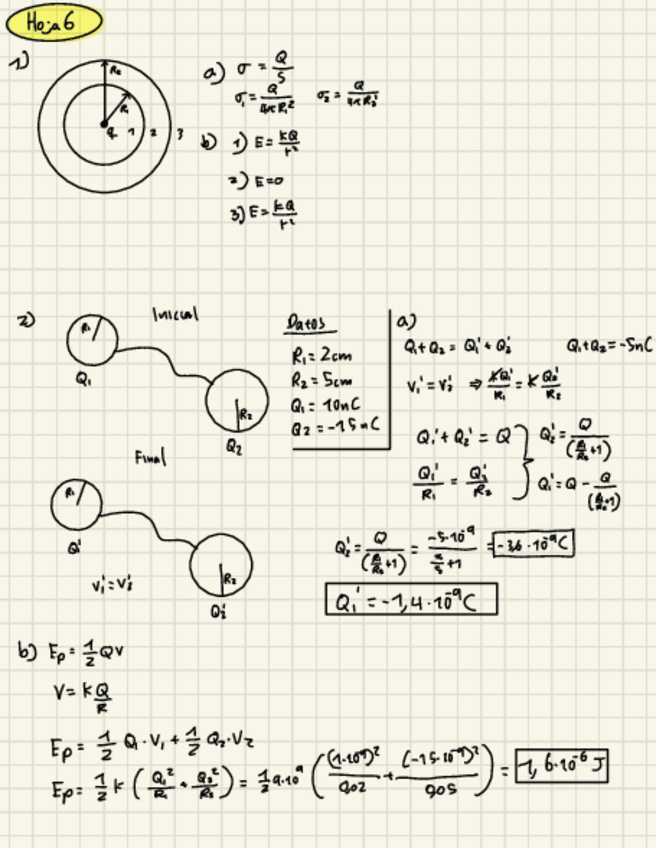 Hoja 6
1)
R₂
R₁
q 1 2 3
a) σ = Q/S
σ₁ = Q/4πR₁² σ₂ = Q/4πR₂²
b) 1) E = kQ/r²
2) E=0
3) E = kQ/r²
2) Inicial
R₁
Q₁
R₂
Q₂
Datos
R₁ = 2cm
R₂ = 5cm
Q₁ = 10nC
Q₂ = -15nC
a)
Q₁+Q₂ = Q₁' + Q₂' Q₁+Q₂ = -5nC
V₁' = V₂' ⇒ kQ₁'/R₁ = k Q₂'/R₂
Q₁' + Q₂' = Q
Q₁'/R₁ = Q₂'/R₂
Q₂' = Q/(R₁/R₂ +1)
Q₁' = Q - Q/(R₁/R₂ +1)
Final
R₁
Q₁'
R₂
Q₂'
V₁' = V₂'
Q₂' = Q/(R₁/R₂ +1) = -5·10⁻⁹/(2/5 +1) = -3,6·10⁻⁹C
Q₁' = -1,4·10⁻⁹C
b) Eₚ = 1/2 QV
V = k Q/R
Eₚ = 1/2 Q₁·V₁ + 1/2 Q₂·V₂
Eₚ = 1/2 k (Q₁²/R₁ + Q₂²/R₂) = 1/2 9·10⁹ ((1·10⁻⁹)²/0,02 + (-15·10⁻⁹)²/0,05) = 1,6·10⁻⁶ J